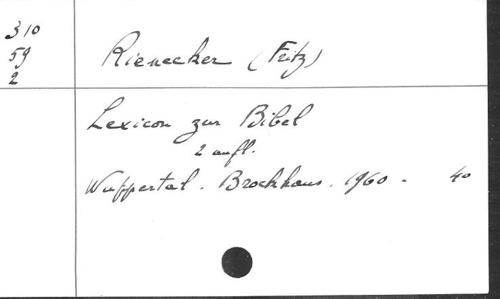 310
59
2
Rienecker (Fritz)
Lexicon zur Bibel
2 aufl.
Wuppertal. Brockhaus. 1960 - 40